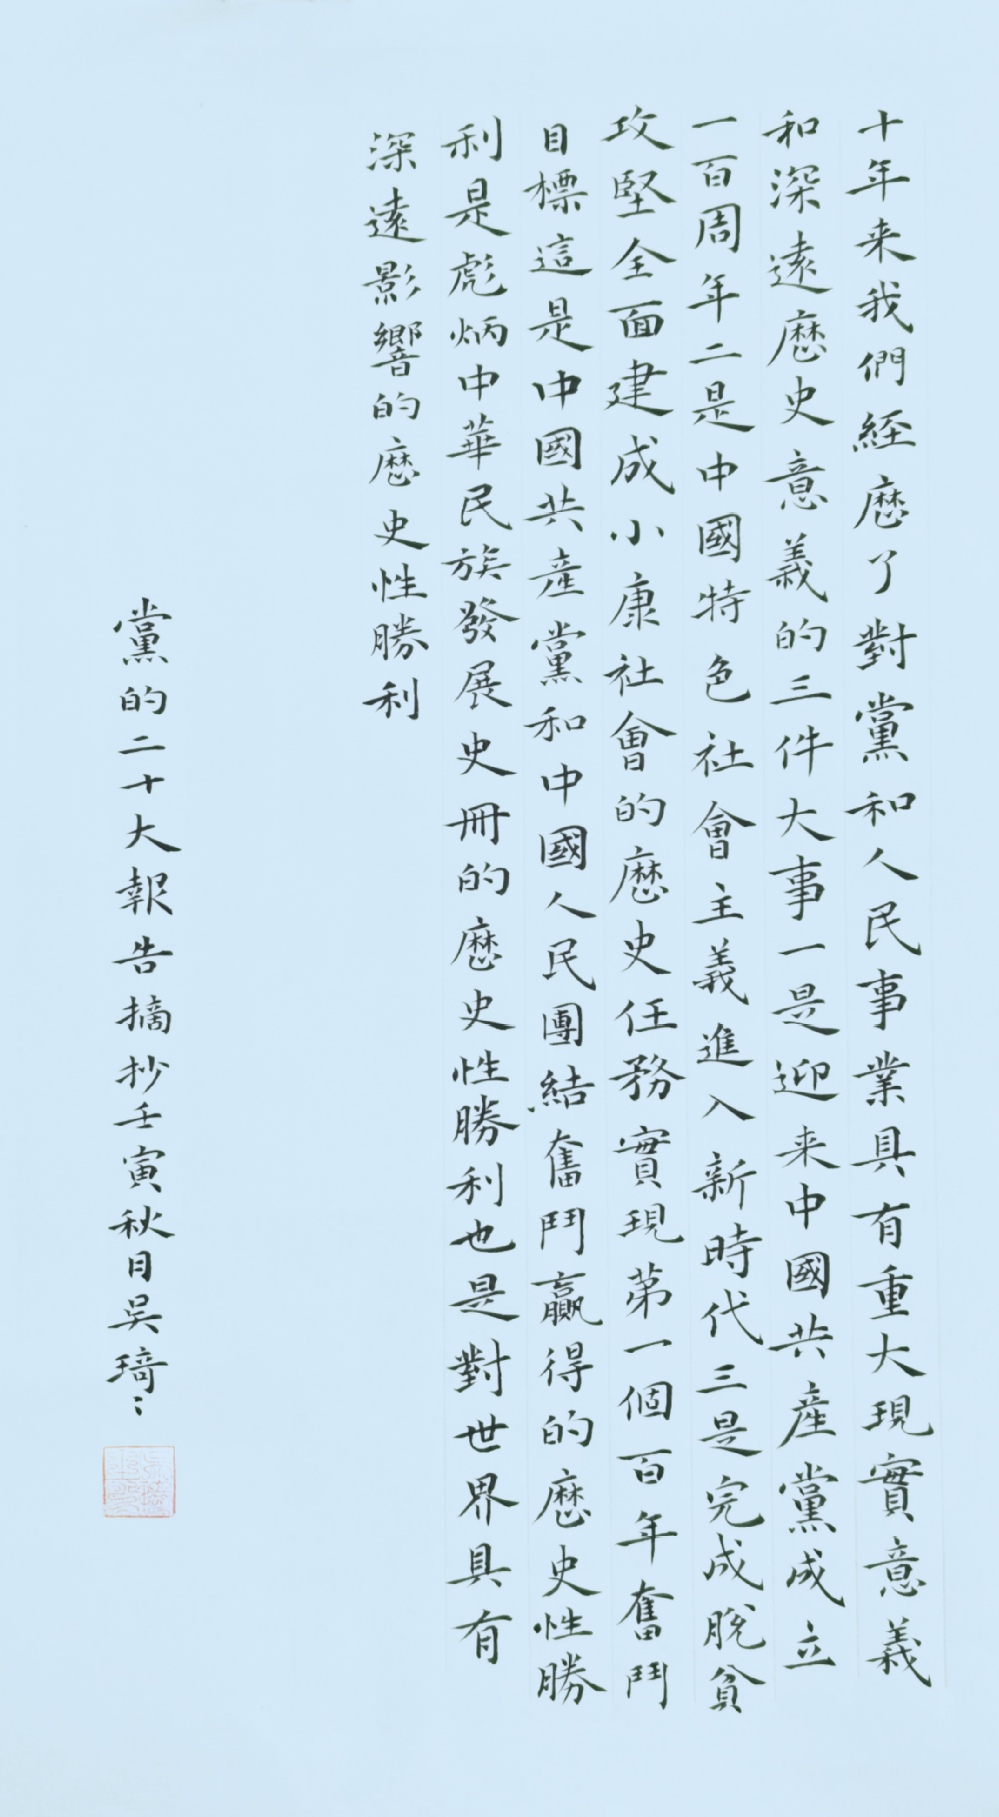 十年来我們經歷了對黨和人民事業具有重大現實意義
和深遠歷史意義的三件大事一是迎来中國共產黨成立
一百周年二是中國特色社會主義進入新時代三是完成脫貧
攻堅全面建成小康社會的歷史任務實現第一個百年奮鬥
目標這是中國共產黨和中國人民團結奮鬥贏得的歷史性勝
利是彪炳中華民族發展史冊的歷史性勝利也是對世界具有
深遠影響的歷史性勝利
黨的二十大報告摘抄壬寅秋月吴琦